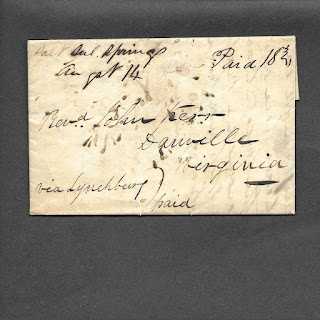 Salt Sul. Springs
Augst 14
Paid 18¾
Revd. John Kerr
Danville
Virginia
via Lynchburg
paid